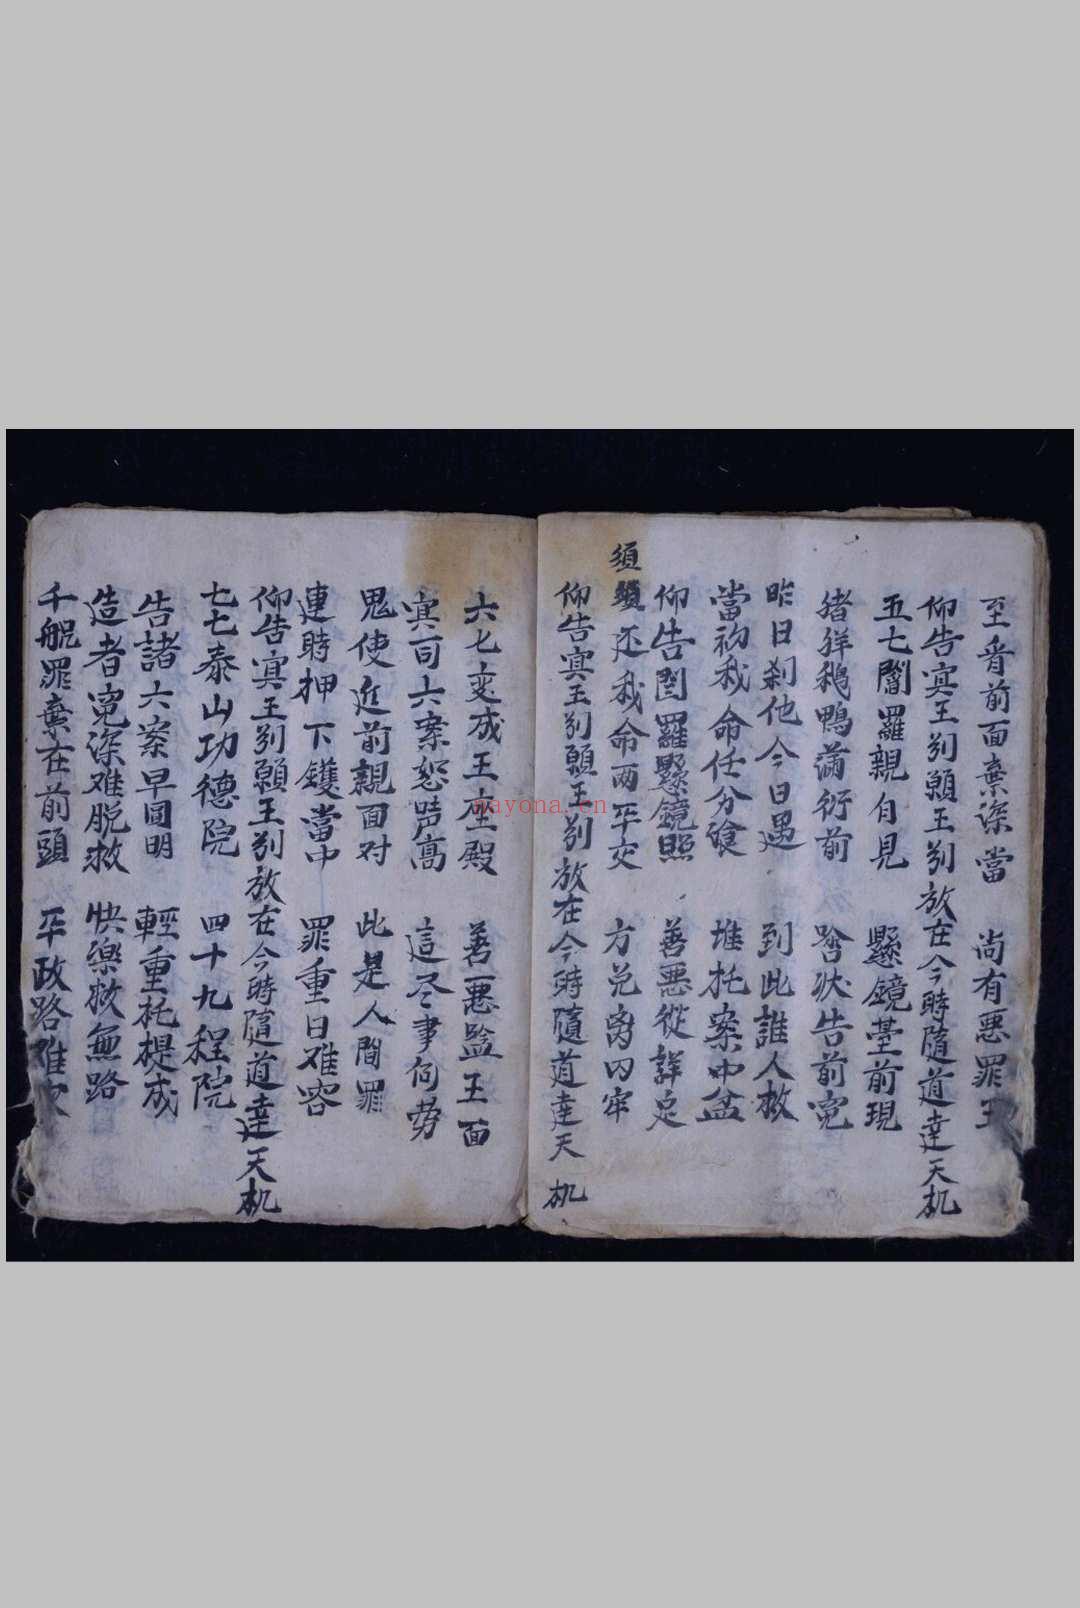 至看前面棄深當 尚有惡罪
仰告冥王別願王別放在今時隨道達天机
五七閻羅親自見 懸鏡臺前現
猪羊鵝鴨滿衍前 啥狀告前寃
昨日刹他今日遇 到此誰人救
當初我命任分飡 堆托案中盆
仰告閻羅懸鏡照 善惡從詳足
須還我命两平交 方兑离内牢
仰告冥王別願王別放在今時隨道達天机
六七变成王座殿 善惡監王面
冥司六案怒声高 這尽事伺劳
鬼使近前親面对 此是人間罪
連時押下鑊當中 罪重日难容
仰告冥王別願王別放在今時隨道達天机
七七泰山功德院 四十九程院
告諸六案早圓明 輕重托提成
造者寃深难脱救 快樂救無路
千般罪棄在前頭 平政路难
nayona.cn